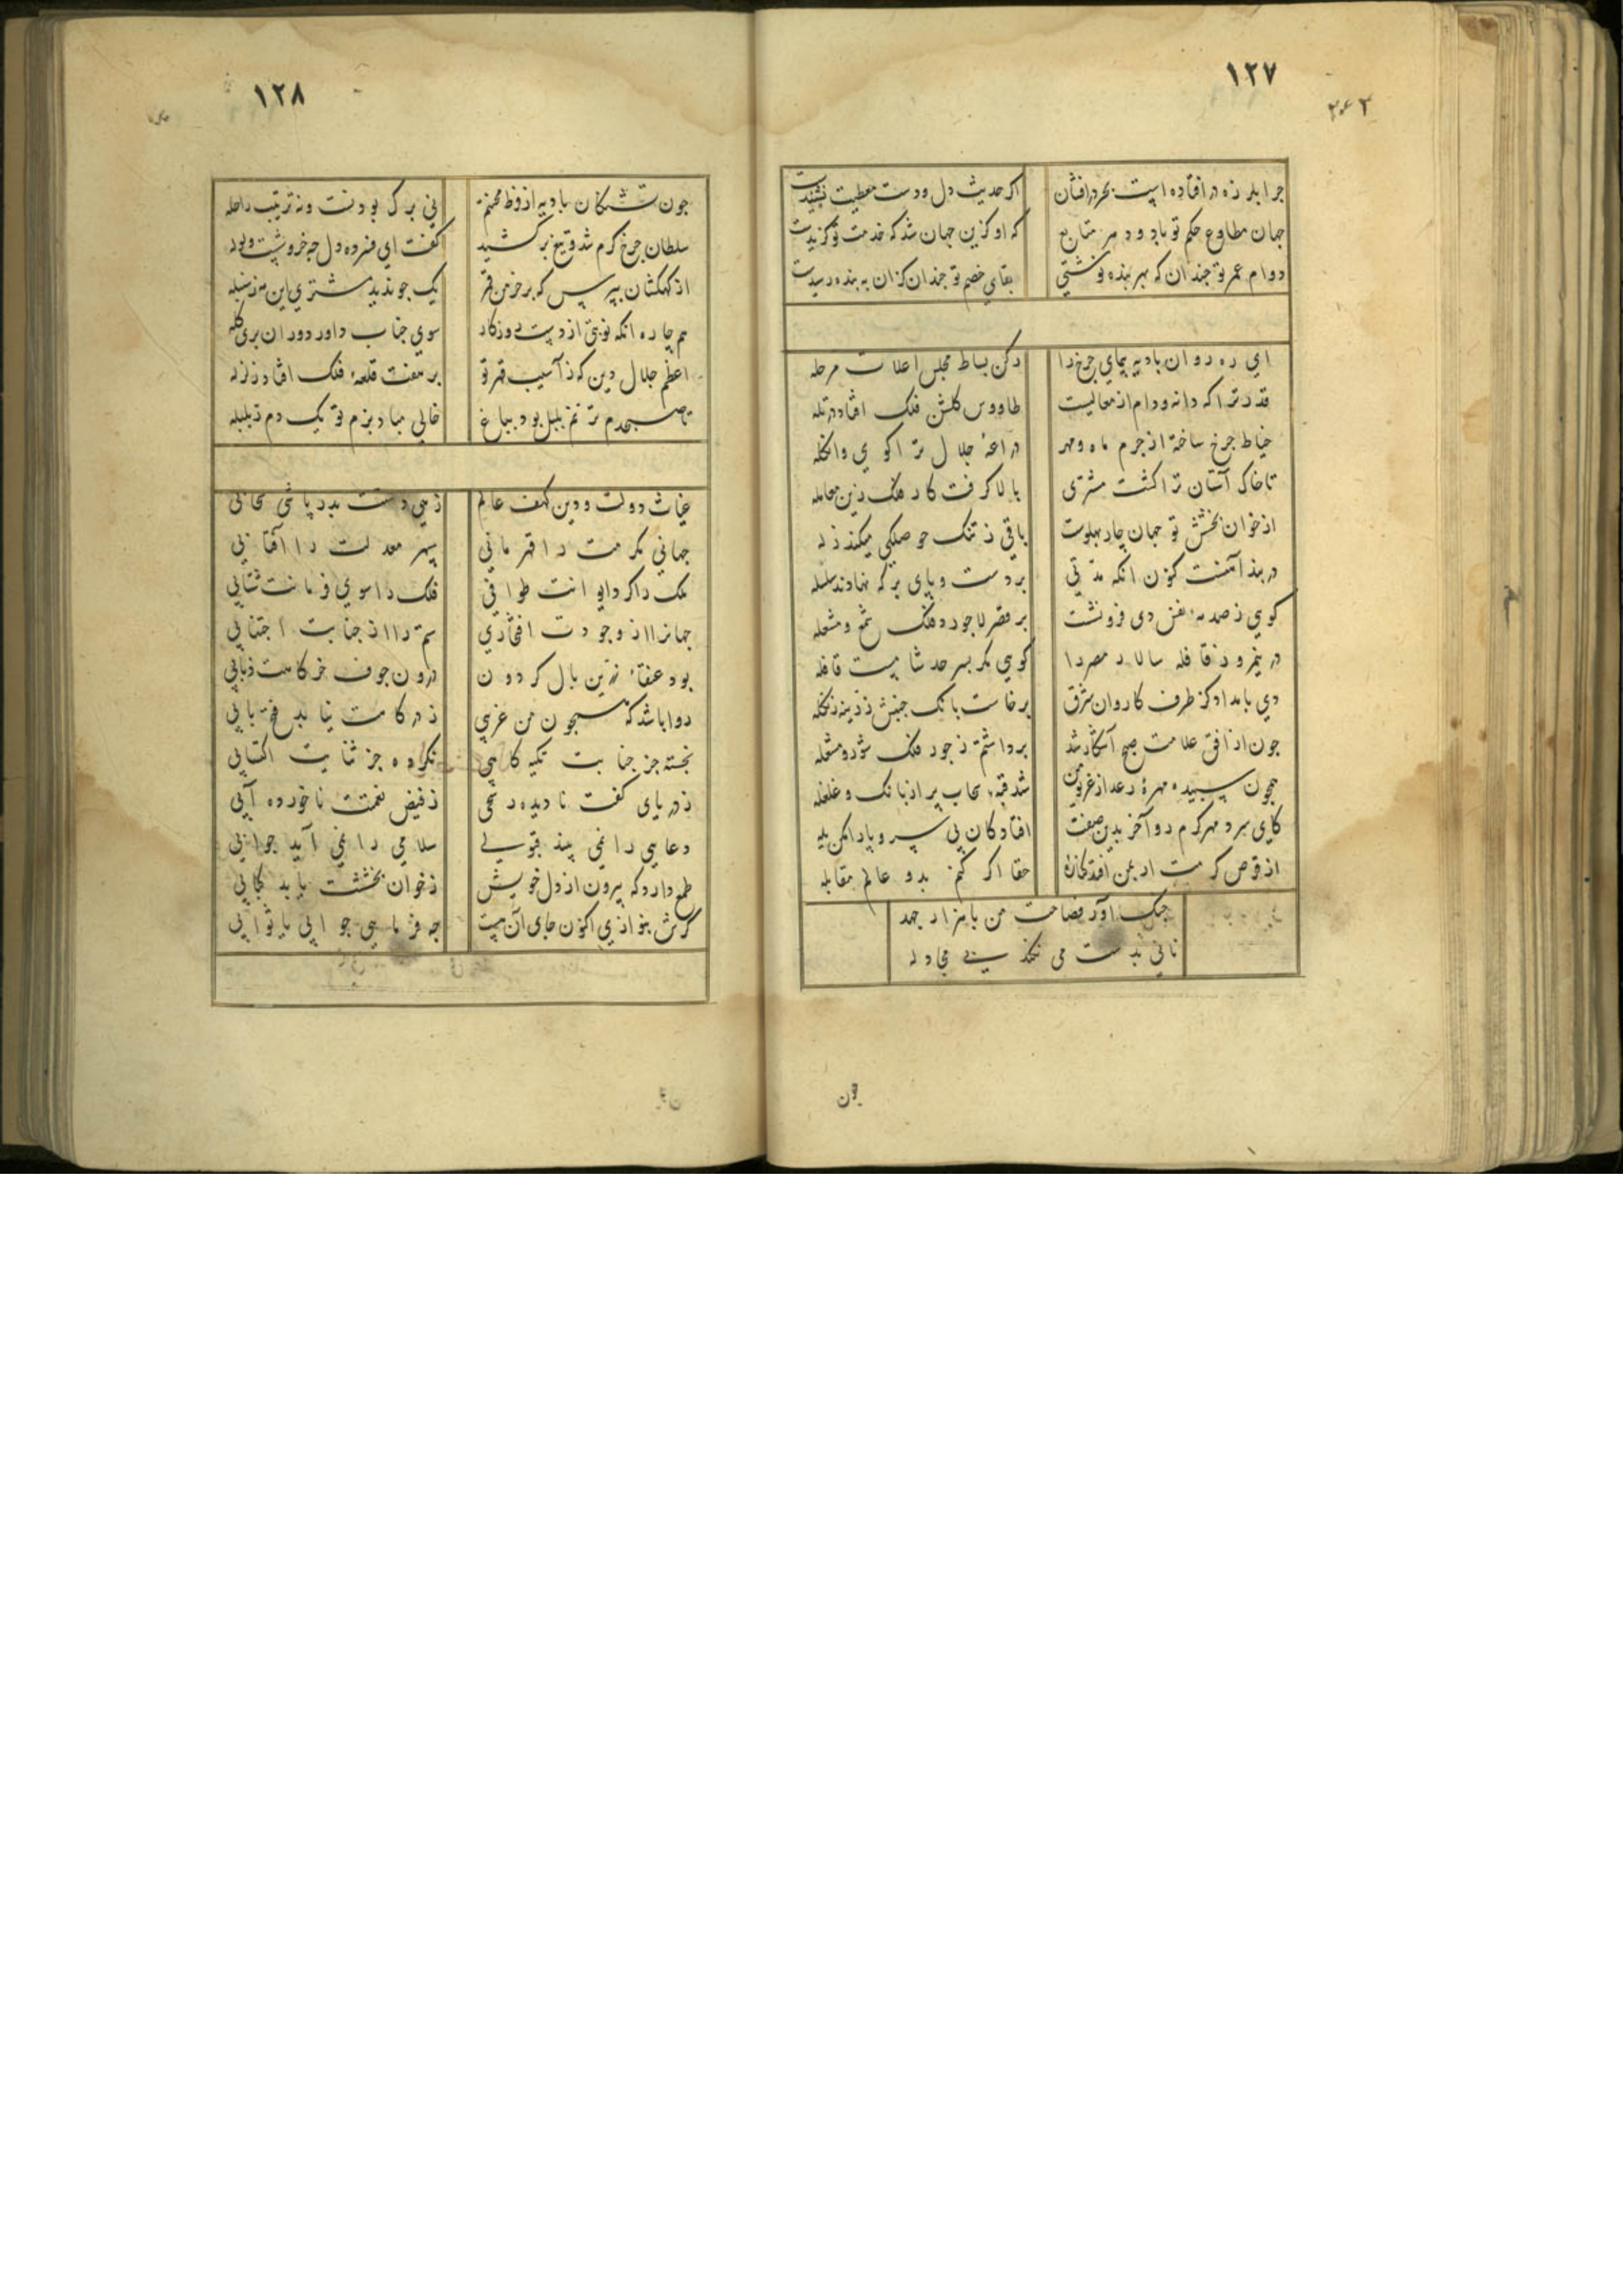 ١٢٧
چرا بلرزه در افتاده است بحر در افشان
اکر حدیث دل و دست معطیت نشنیدست
جهان مطاوع حکم تو باد و دهر متابع
که او کزین جهان شد که خدمت تو کزیدست
دوام عمر تو چندان که بهر بنده نوشتی
بقای خصم تو چندان کزان به بنده رسیدست
ای ره روان بادیه پیمای چرخ را
رکن بساط مجلس اعلات مرحله
قدر ترا که دانه و دام از معالیست
طاووس کلشن فلک افتاد در تله
خیاط چرخ ساخته از جرم ماه و مهر
دراعهٔ جلال ترا کوی وانکله
تا خاک آستان ترا کشت مشتری
بالا کرفت کار فلک زین معامله
از خوان بخشش تو جهان چار پهلوست
باقی ز تنک حوصلکی میکند زله
در بند آتشست کون انکه مدتی
بر دست و پای برکه نهادند سلسله
کوی ز صدمه نفس دی فرو نشست
بر قصر لاجورد فلک شمع و مشعله
در نیمروز قافله سالار مصر را
کوی مکر بسرحد شامیست قافله
دی بامداد کز طرف کاروان شرق
برخاست بانک جنبش زرینه زنکله
چون از افق علامت صبح آشکار شد
برداشتم ز جور فلک شور و مشغله
همچون سپیده مهرهٔ رعد از غریو من
شد قبه سحاب پر از بانک و غلغله
کای سرد مهر کرم رو آخر بدین صفت
افتادکان بی سر و پا را مکن یله
از قرص کرمت ار بمن افتد کنارهٔ
حقا اکر کنم بدو عالم مقابله
جنک آور فصاحت من با هزار جهد
نانی بدست می نکند بی مجادله
چون
١٢٨
چون تشنکان بادیه از فرط محنتم
نی برک بودنست و نه ترتیب راحله
سلطان چرخ کرم شد و تیغ برکشید
کفت ای فسرده دل چه خروشست و ولوله
از کهکشان بپرس که بر خرمن قمر
یک جو ندید مشتری این نه ز سنبله
هم چاره انکه نوبتی از دست روزکار
سوی جناب داور دوران بری کله
اعظم جلال دین که ز آسیب قهر تو
بر هفت قلعهٔ فلک افتاد زلزله
تا صبحدم ترنم بلبل بود بباغ
خالی مباد بزم تو یک دم ز بلبله
غیاث دولت و دین کهف عالم
زهی دستت بدرپاشی سحابی
جهانی مکرمت را قهرمانی
سپهر معدلت را آفتابی
ملک را کرد ایوانت طوافی
فلک را سوی فرمانت شتابی
جهانرا از وجودت افتخاری
ستم را از جنابت اجتنابی
بود عنقاء زرین بال کردون
درون جوف خرکاهت ذبابی
روا باشد که همچون من غریبی
ز درکاهت نیابد فتح بابی
بجسته جز جنابت تکیه کاهی
نکرده جز ثنایت اکتسابی
ز دریای کفت نادیده رشحی
ز فیض نعمتت ناخورده آبی
دعایی را نمی بیند قبولی
سلامی را نمی آید جوابی
طمع دارد که بیرون از دل خویش
ز خوان بخششت یابد کبابی
کرش بنوازی اکنون جای آن هست
چه فرمایی جوابی یا ثوابی